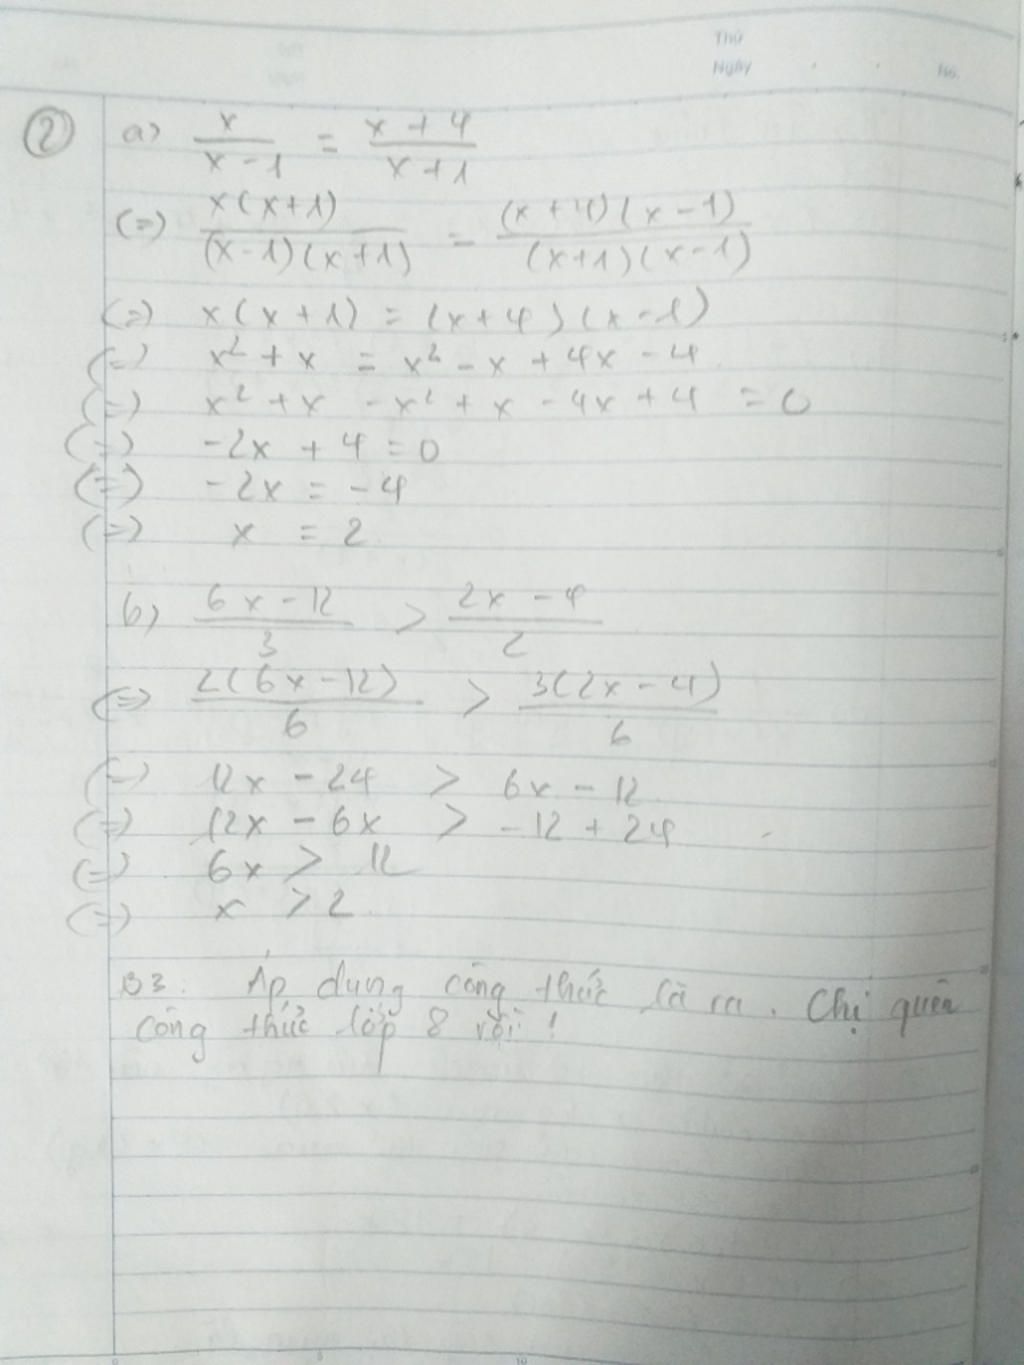 Thứ
Ngày
No.
② a) x/(x - 1) = (x + 4)/(x + 1)
(=) x(x+1)/((x-1)(x+1)) = (x+4)(x-1)/((x+1)(x-1))
(=) x(x+1) = (x+4)(x-1)
(=) x² + x = x² - x + 4x - 4
(=) x² + x - x² + x - 4x + 4 = 0
(=) -2x + 4 = 0
(=) -2x = -4
(=) x = 2
b) (6x - 12)/3 > (2x - 4)/2
(=) 2(6x - 12)/6 > 3(2x - 4)/6
(=) 12x - 24 > 6x - 12
(=) 12x - 6x > -12 + 24
(=) 6x > 12
(=) x > 2
B3: Áp dụng công thức là ra. Chị quên
công thức lớp 8 rồi!